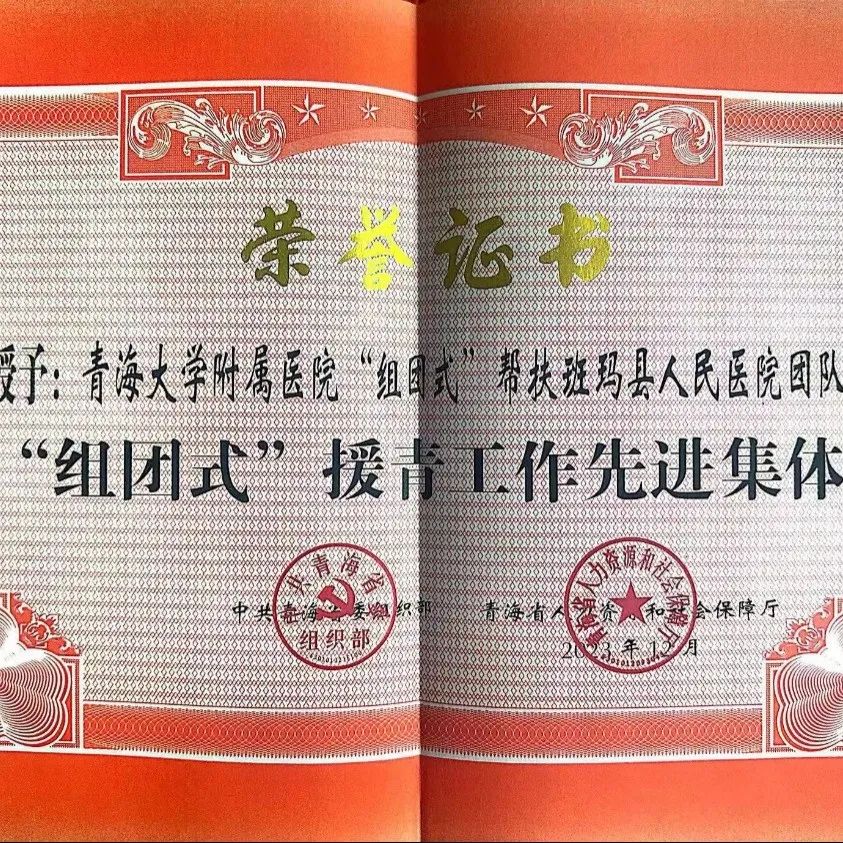 荣誉证书
授予：青海大学附属医院“组团式”帮扶班玛县人民医院团队
“组团式”援青工作先进集体
中共青海省委组织部 青海省人力资源和社会保障厅
2023年12月
中共青海省委
组织部
青海省人力资源和社会保障厅